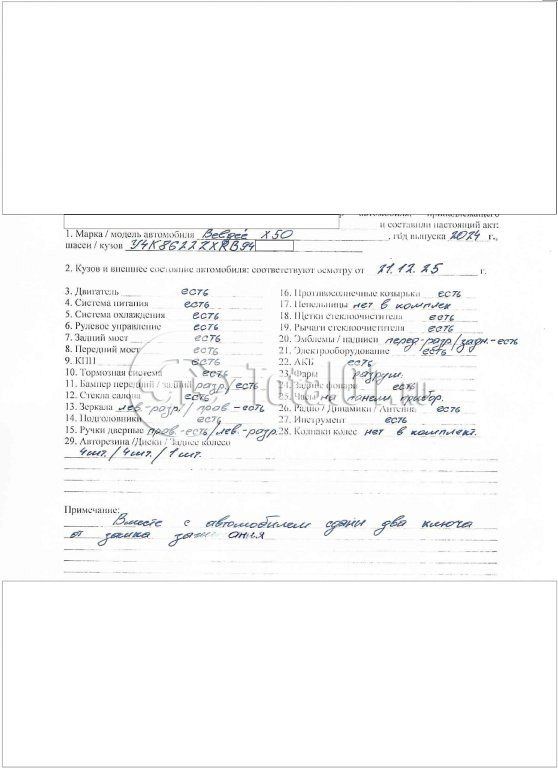 автомобиля, принадлежащего
и составили настоящий акт:
1. Марка / модель автомобиля Belgee X50, год выпуска 2024 г.,
шасси / кузов Y4K8622ZXRB94
2. Кузов и внешнее состояние автомобиля: соответствуют осмотру от 21.12.25 г.
3. Двигатель есть
4. Система питания есть
5. Система охлаждения есть
6. Рулевое управление есть
7. Задний мост есть
8. Передний мост есть
9. КПП есть
10. Тормозная система есть
11. Бампер передний / задний разр / есть
12. Стекла салона есть
13. Зеркала лев.-разр / прав-есть
14. Подголовники есть
15. Ручки дверные прав.-есть/лев.-разр.
16. Противосолнечные козырько есть
17. Пепельницы нет в комплек
18. Щетки стеклоочистителя есть
19. Рычаги стеклоочистителя есть
20. Эмблемы / надписи перед-разр/задн.-есть
21. Электрооборудование есть
22. АКБ есть
23. Фары разруш.
24. Задние фонари есть
25. Часы на панели прибор.
26. Радио / Динамики / Антенна есть
27. Инструмент есть
28. Колпаки колес нет в комплект.
29. Авторезина /Диски / Заднее колесо
4шт./4шт./1шт.
Примечание:
Вместе с автомобилем сданы два ключа
от замка